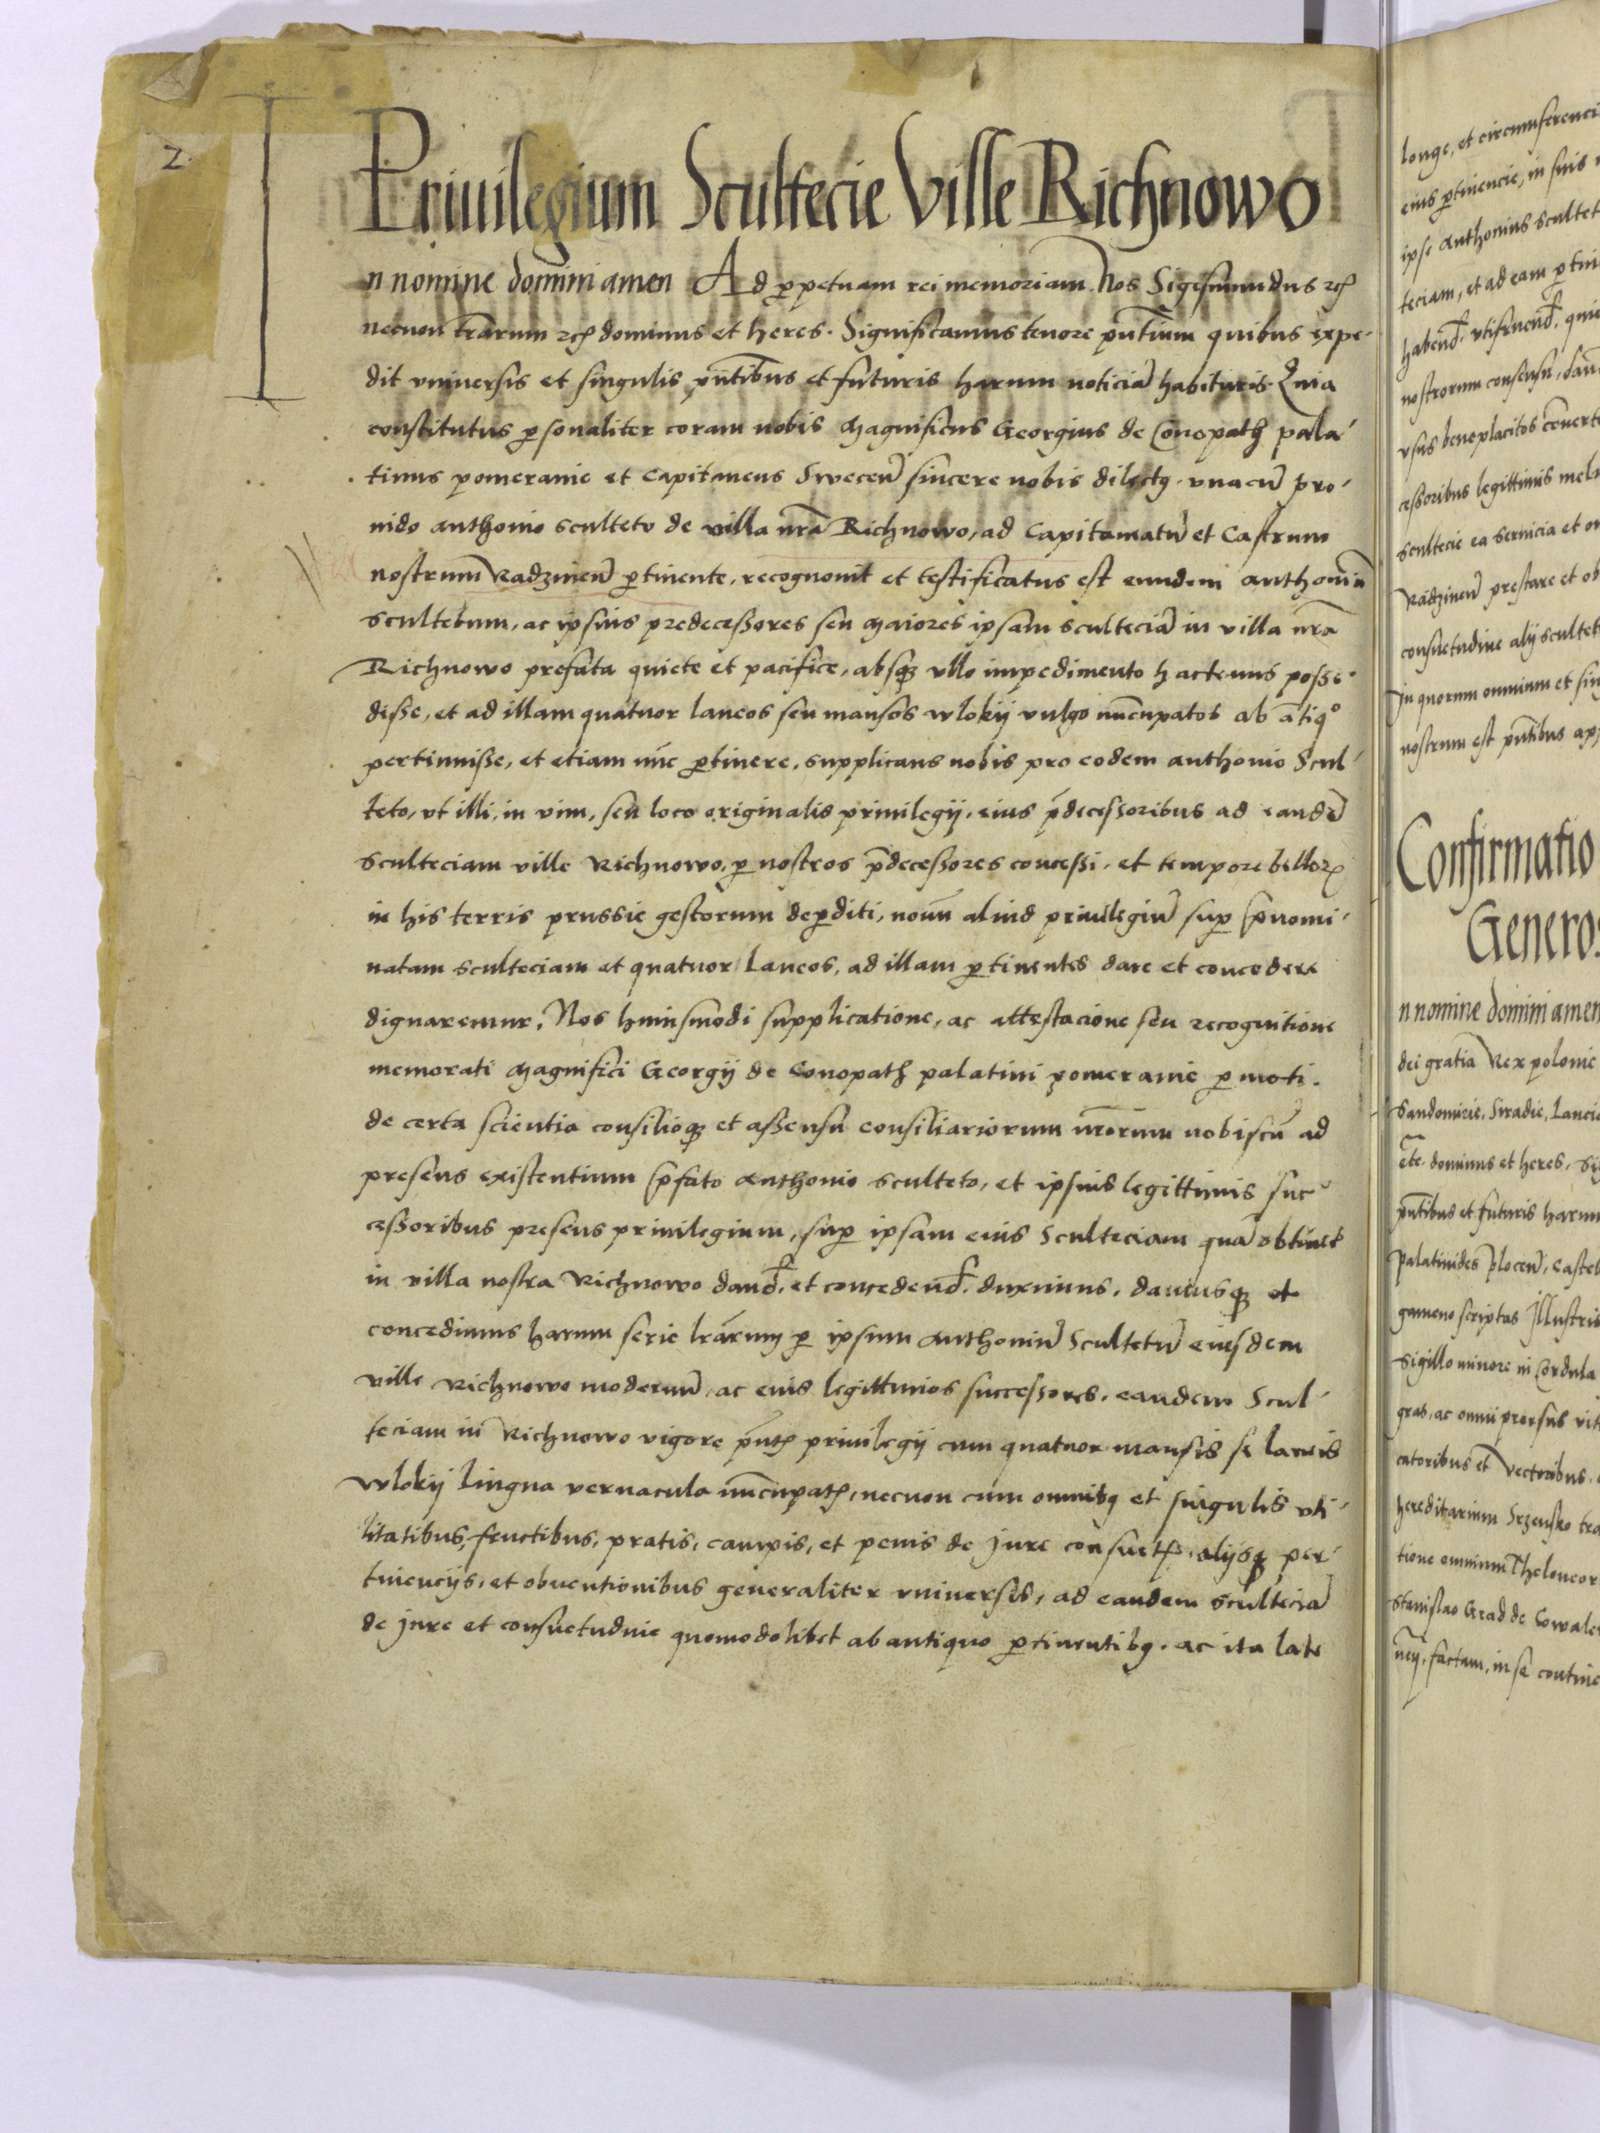 2.
Priuilegium Scultecie Ville Richnowo
In nomine domini amen Ad ꝑpetuam rei memoriam. Nos Sigismundus ꝛcꝭ
necnon tr̄arum ꝛcꝭ dominus et heres. Significamus tenore pn̄tium quibus expe-
dit vniuersis et singulis pn̄tibus et futuris harum noticiā habituris. Quia
constitutus ꝑsonaliter coram nobis Magnificus Georgius de Conopath pala-
tinus pomeranie et capitaneus Swecen̄ sincere nobis dilectꝯ. vnacū pro-
uido anthonio sculteto de villa nr̄a Richnowo, ad Capitaneatū et Castrum
nostrum Radzinen̄ ꝑtinente, recognouit et testificatus est eundem anthoniū
scultetum, ac ipsius predecessores seu Maiores ipsam sculteciā in villa nr̄a
Richnowo prefata quiete et pacifice, absqꝫ vllo impedimento hactenus posse-
disse, et ad illam quatuor laneos seu mansos wlokij vulgo nūcupatos ab ātiqº
pertinuisse, et etiam nūc ꝑtinere. supplicans nobis pro eodem anthonio Scul-
teto, vt illi, in vim, seu loco originalis priuilegij, eius p̄decessoribus ad eandē
sculteciam ville Richnowo, ꝑ nostros p̄decessores concessi, et tempore belloꝝ
in his terris prussie gestorum deꝑditi, nouū aliud priuilegiū suꝑ p̄nomi-
natam sculteciam et quatuor Laneos, ad illam ꝑtinentes dare et concedere
dignaremur. Nos huiusmodi supplicatione, ac attestacione seu recognitione
memorati Magnifici Georgij de Conopath palatini pomeranie ꝑmoti.
de certa scientia consilioqꝫ et assensu consiliariorum nr̄orum nobiscū ad
presens existentium p̄fato Anthonio sculteto, et ipsius legittimis suc-
cessoribus presens priuilegium, suꝑ ipsam eius Sculteciam quā obtinet
in villa nostra Richnowo dand̄. et concedend̄. duximus, damusqꝫ et
concedimus harum serie lr̄arum, ꝑ ipsum Anthoniū Scultetū eiusdem
ville Richnowo modernū, ac eius legittimos successores, eandem Scul-
teciam in Richnowo vigore pn̄tꝭ priuilegij cum quatuor mansis seu laneis
wlokij lingua vernacula nūcupatꝭ, necnon cum omnibꝯ et singulis vti-
litatibus, fructibus, pratis, campis, et penis de Jure consuetꝭ, alijsqꝫ per-
tinencijs, et obuentionibus generaliter vniuersis, ad eandem scultecia
de jure et consuetudine quomodolibet ab antiquo ꝑtinentibꝯ. ac ita late
longe, et circumferenci
eius ꝑtinencie, in suis
ipse Anthonius scultet
teciam, et ad eam ꝑtin
habend̄. vtifruend̄.
nostrorum consensu,
vsus beneplacitos
cessoribus legittimis
scultecie ea seruicia et
Radzinen̄ prestare et ob
consuetudine alij scultet
In quorum omnium et
nostrum est pn̄tibus app
Confirmatio
Generos
n nomine domini amen
dei gratia Rex polonie
Sandomirie, Siradie, Lanci
etc. dominus et heres.
pn̄tibus et futuris harum
palatinides plocen̄, castel
gameno scriptas Illustris
sigillo minore in Cordula
gras, ac omni prorsus vit
catoribus et vectoribus
hereditarium Srzensko
tione omnium Theloneor
Stanislao Grad de Cowale
factam, in se contine